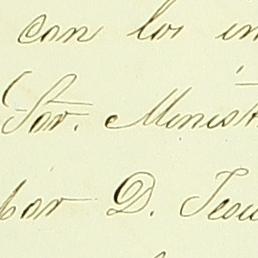 con los in
Sor. Minist
por D. Jesu